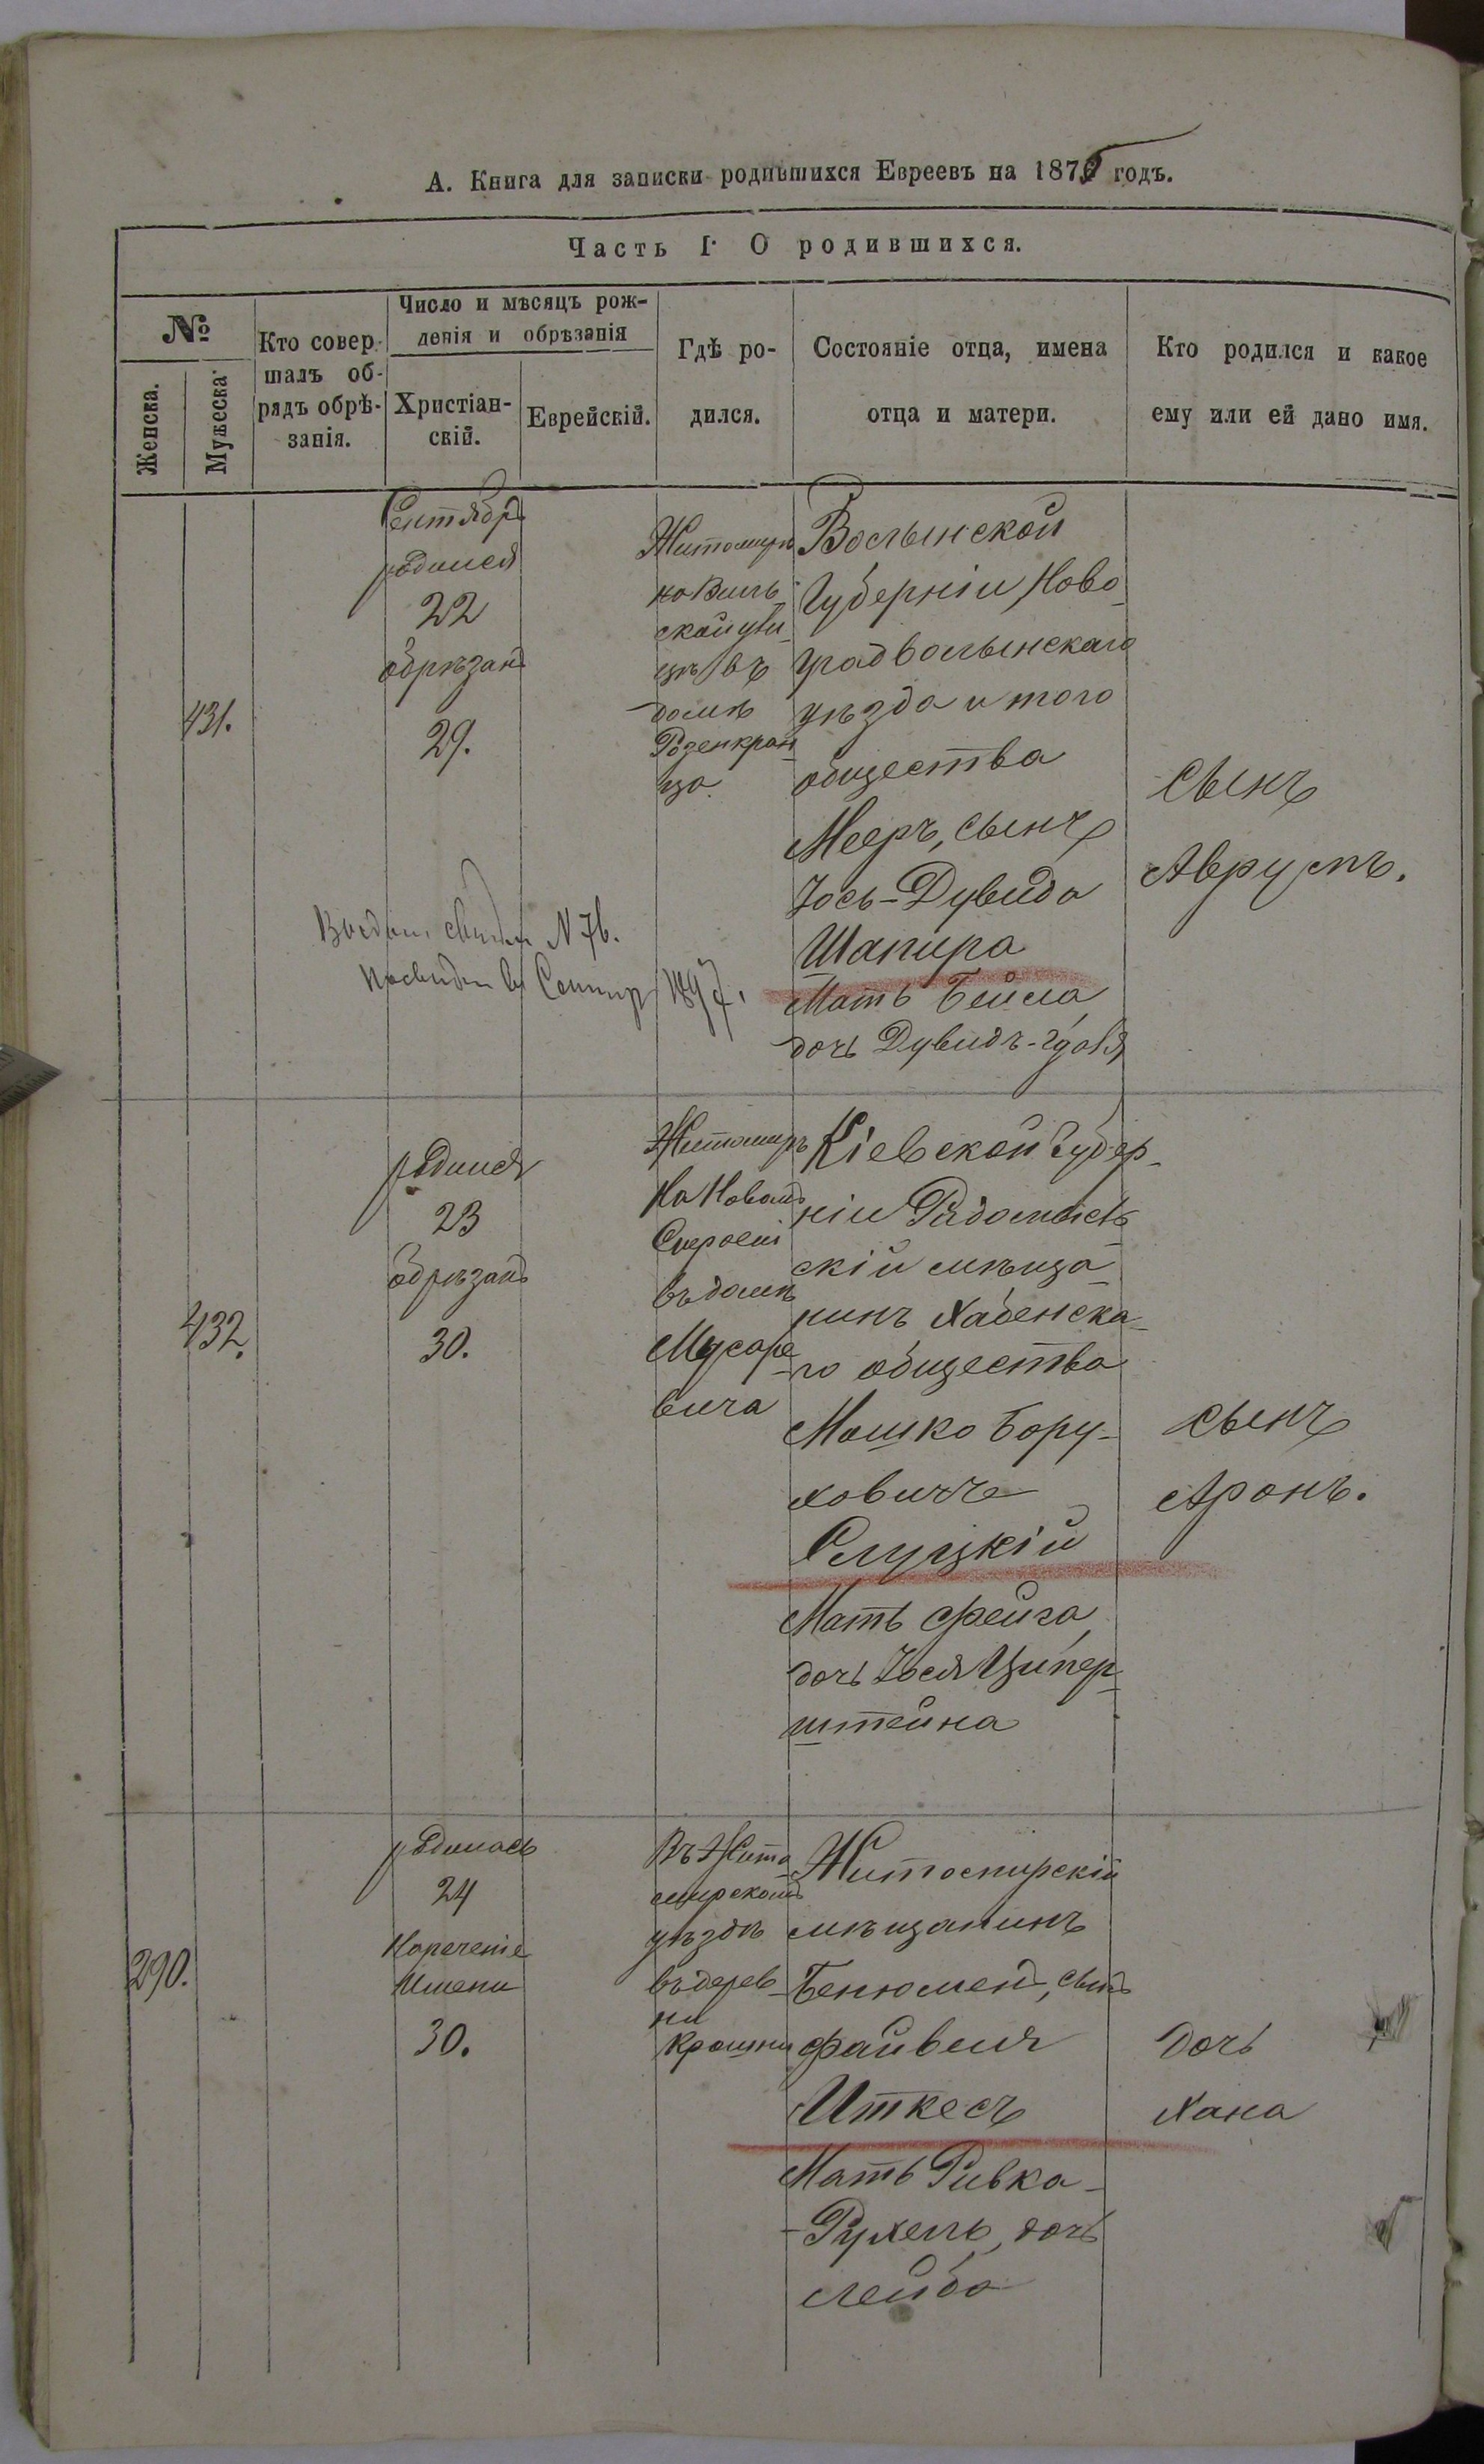 А. Книга для записки родившихся Евреевъ на 1875 годъ.
Часть I. О родившихся.
№
Женска.
Мужеска.
Кто совер-
шалъ об-
рядъ обрѣ-
занія.
Число и мѣсяцъ рож-
денія и обрѣзанія
Христіан-
скій.
Еврейскій.
Гдѣ ро-
дился.
Состояніе отца, имена
отца и матери.
Кто родился и какое
ему или ей дано имя.
431.
Сентябрь
родился
22
обрѣзанъ
29.
Житомиръ
на Виль
ской ули-
цѣ въ
домѣ
Розенкран
ца.
Волынской
Губерніи Ново-
градволынскаго
уѣзда и того
общества
Мееръ, сынъ
Іось-Дувида
Шапира
Мать Бейла,
дочь Дувидъ-
Сынъ
Аврумъ.
N 76.
432.
родился
23
обрѣзанъ
30.
Житомиръ
На Новомъ
Строеніи
въ домѣ
вича
Кіевской Губер-
ніи Радомысль
скій мѣща-
нинъ Хабенска-
го общества
Мошко Бору-
ховичъ
Слуцкій
Мать Фейга,
дочь Іося Ципер-
штейна
сынъ
Аронъ.
290.
родилась
24
Нареченіе
Имени
30.
Въ Жито-
мирскомъ
уѣздѣ
въ дерев-
ни
Крошни
Житомирскій
мѣщанинъ
Бенюмен, сынъ
Файвеля
Иткесъ
Мать Ривка-
-Рухель, дочь
Лейба
дочь
Хана